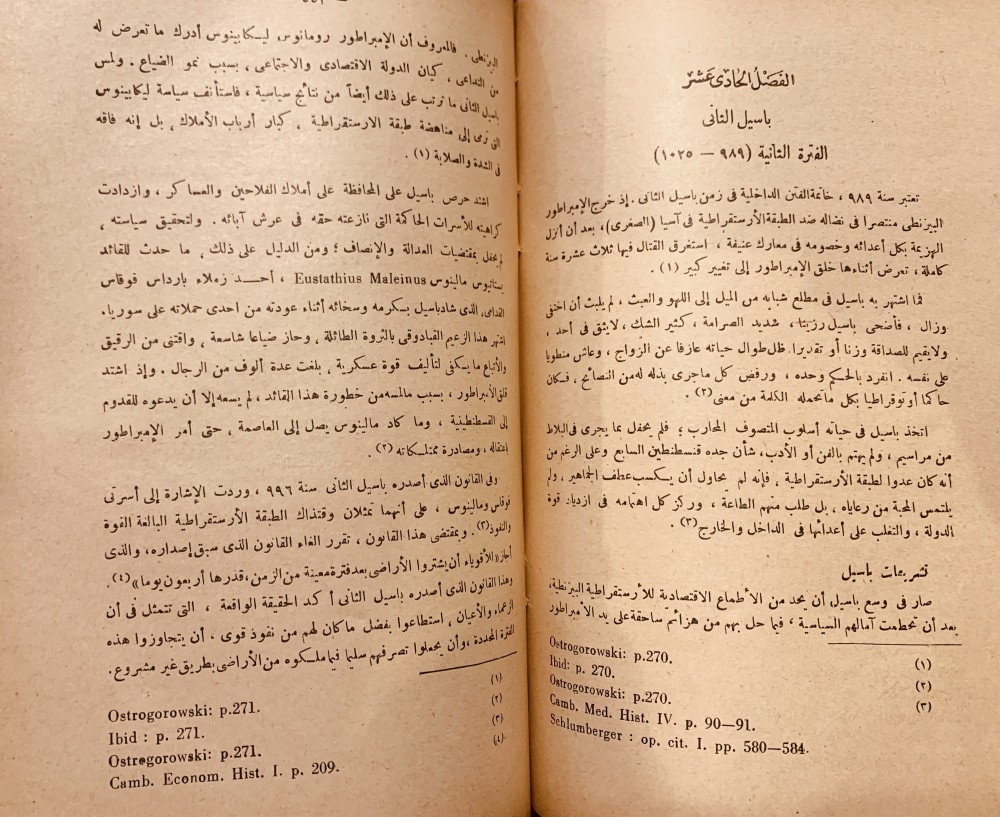 الفصل الحادى عشر
باسيل الثانى
الفترة الثانية (٩٨٩ — ١٠٢٥)
تعتبر سنة ٩٨٩ ، خاتمة الفتن الداخلية فى زمن باسيل الثانى . إذ خرج الإمبراطور
البيزنطى منتصرا فى نضاله ضد الطبقة الأرستقراطية فى آسيا (الصغرى)، بعد أن أنزل
الهزيمة بكل أعدائه وخصومه فى معارك عنيفة ، استغرق القتال فيها ثلاث عشرة سنة
كاملة ، تعرض أثناءها خلق الإمبراطور إلى تغيير كبير (١) .
فما اشتهر به باسيل فى مطلع شبابه من الميل إلى اللهو والعبث ، لم يلبث أن اختفى
وزال ، فأضحى باسيل رزينا ، شديد الصرامة ، كثير الشك ، لا يثق فى أحد ،
ولا يقيم للصداقة وزنا أو تقديرا . ظل طوال حياته عازفا عن الزواج ، وعاش منطويا
على نفسه . انفرد بالحكم وحده ، ورفض كل ماجرى بذله له من النصائح ، فكان
حاكما أوتوقراطيا بكل ماتحمله الكلمة من معنى (٢) .
اتخذ باسيل فى حياته أسلوب المتصوف المحارب ؛ فلم يحفل بما يجرى فى البلاط
من مراسيم ، ولم يهتم بالفن أو الأدب، شأن جده قنسطنطين السابع وعلى الرغم من
أنه كان عدوا لطبقة الأرستقراطية ، فإنه لم يحاول أن يكسب عطف الجماهير ، ولم
يلتمس المحبة من رعاياه ، بل طلب منهم الطاعة ، وركز كل اهتمامه فى ازدياد قوة
الدولة ، والتغلب على أعدائها فى الداخل والخارج (٣) .
تشريعات باسيل
صار فى وسع باسيل، أن يحد من الأطماع الاقتصادية للأرستقراطية البيزنطية،
بعد أن تحطمت آمالهم السياسية ، فيما حل بهم من هزائم ساحقة على يد الأمبراطور
(١) Ostrogorowski: p.270.
(٢) Ibid: p. 270.
(٣) Ostrogorowski: p.270.
Camb. Med. Hist. IV. p. 90—91.
Schlumberger : op. cit. I. pp. 580—584.
البيزنطى . فالمعروف أن الإمبراطور رومانوس ليسكابينوس أدرك ما تعرض له
من التداعى ، كيان الدولة الاقتصادى والاجتماعى ، بسبب نمو الضياع . ولمس
باسيل الثانى ما ترتب على ذلك أيضاً من نتائج سياسية ، فاستأنف سياسة ليكابينوس
التى ترمى إلى مناهضة طبقة الارستقراطية ، كبار أرباب الأملاك ، بل إنه فاقه
فى الشدة والصلابة (١) .
اشتد حرص باسيل على المحافظة على أملاك الفلاحين والعساكر ، وازدادت
كراهيته للأسرات الحاكمة التى نازعته حقه فى عرش آبائه . ولتحقيق سياسته ،
لم يحفل بمقتضيات العدالة والإنصاف ؛ ومن الدليل على ذلك ، ما حدث للقائد
يستاثيوس مالينوس Eustathius Maleinus ، أحد زملاء بارداس فوقاس
القدامى، الذى شاد باسيل بكرمه وسخائه أثناء عودته من احدى حملاته على سوريا.
اشتهر هذا الزعيم القبادوقى بالثروة الطائلة ، وحاز ضياعا شاسعة ، واقتنى من الرقيق
والأتباع ما يكفى لتأليف قوة عسكرية ، بلغت عدة ألوف من الرجال . وإذ اشتد
قلق الأمبراطور ، بسبب مالمسه من خطورة هذا القائد ، لم يسعه إلا أن يدعوه للقدوم
إلى القسطنطينية ، وما كاد مالينوس يصل إلى العاصمة ، حتى أمر الإمبراطور
باعتقاله ، ومصادرة ممتلكاته (٢) .
وفى القانون الذى أصدره باسيل الثانى سنة ٩٩٦ ، وردت الإشارة إلى أسرتى
فوقاس ومالينوس ، على أنهما تمثلان وقتذاك الطبقة الأرستقراطية البالغة القوة
والنفوذ (٣) . وبمقتضى هذا القانون ، تقرر الغاء القانون الذى سبق إصداره، والذى
أجاز «للأقوياء أن يشتروا الأراضى بعد فترة معينة من الزمن، قدرها أربعون يوما» (٤) .
وهذا القانون الذى أصدره باسيل الثانى أكد الحقيقة الواقعة ، التى تتمثل فى أن
الزعماء والأعيان ، استطاعوا بفضل ما كان لهم من نفوذ قوى ، أن يتجاوزوا هذه
الفترة المحددة ، وأن يجعلوا تصرفهم سليما فيما ملسكوه من الأراضى بطريق غير مشروع .
(١) Ostrogorowski: p.271.
(٢) Ibid : p. 271.
(٣) Ostrogorowski: p.271.
(٤) Camb. Econom. Hist. I. p. 209.